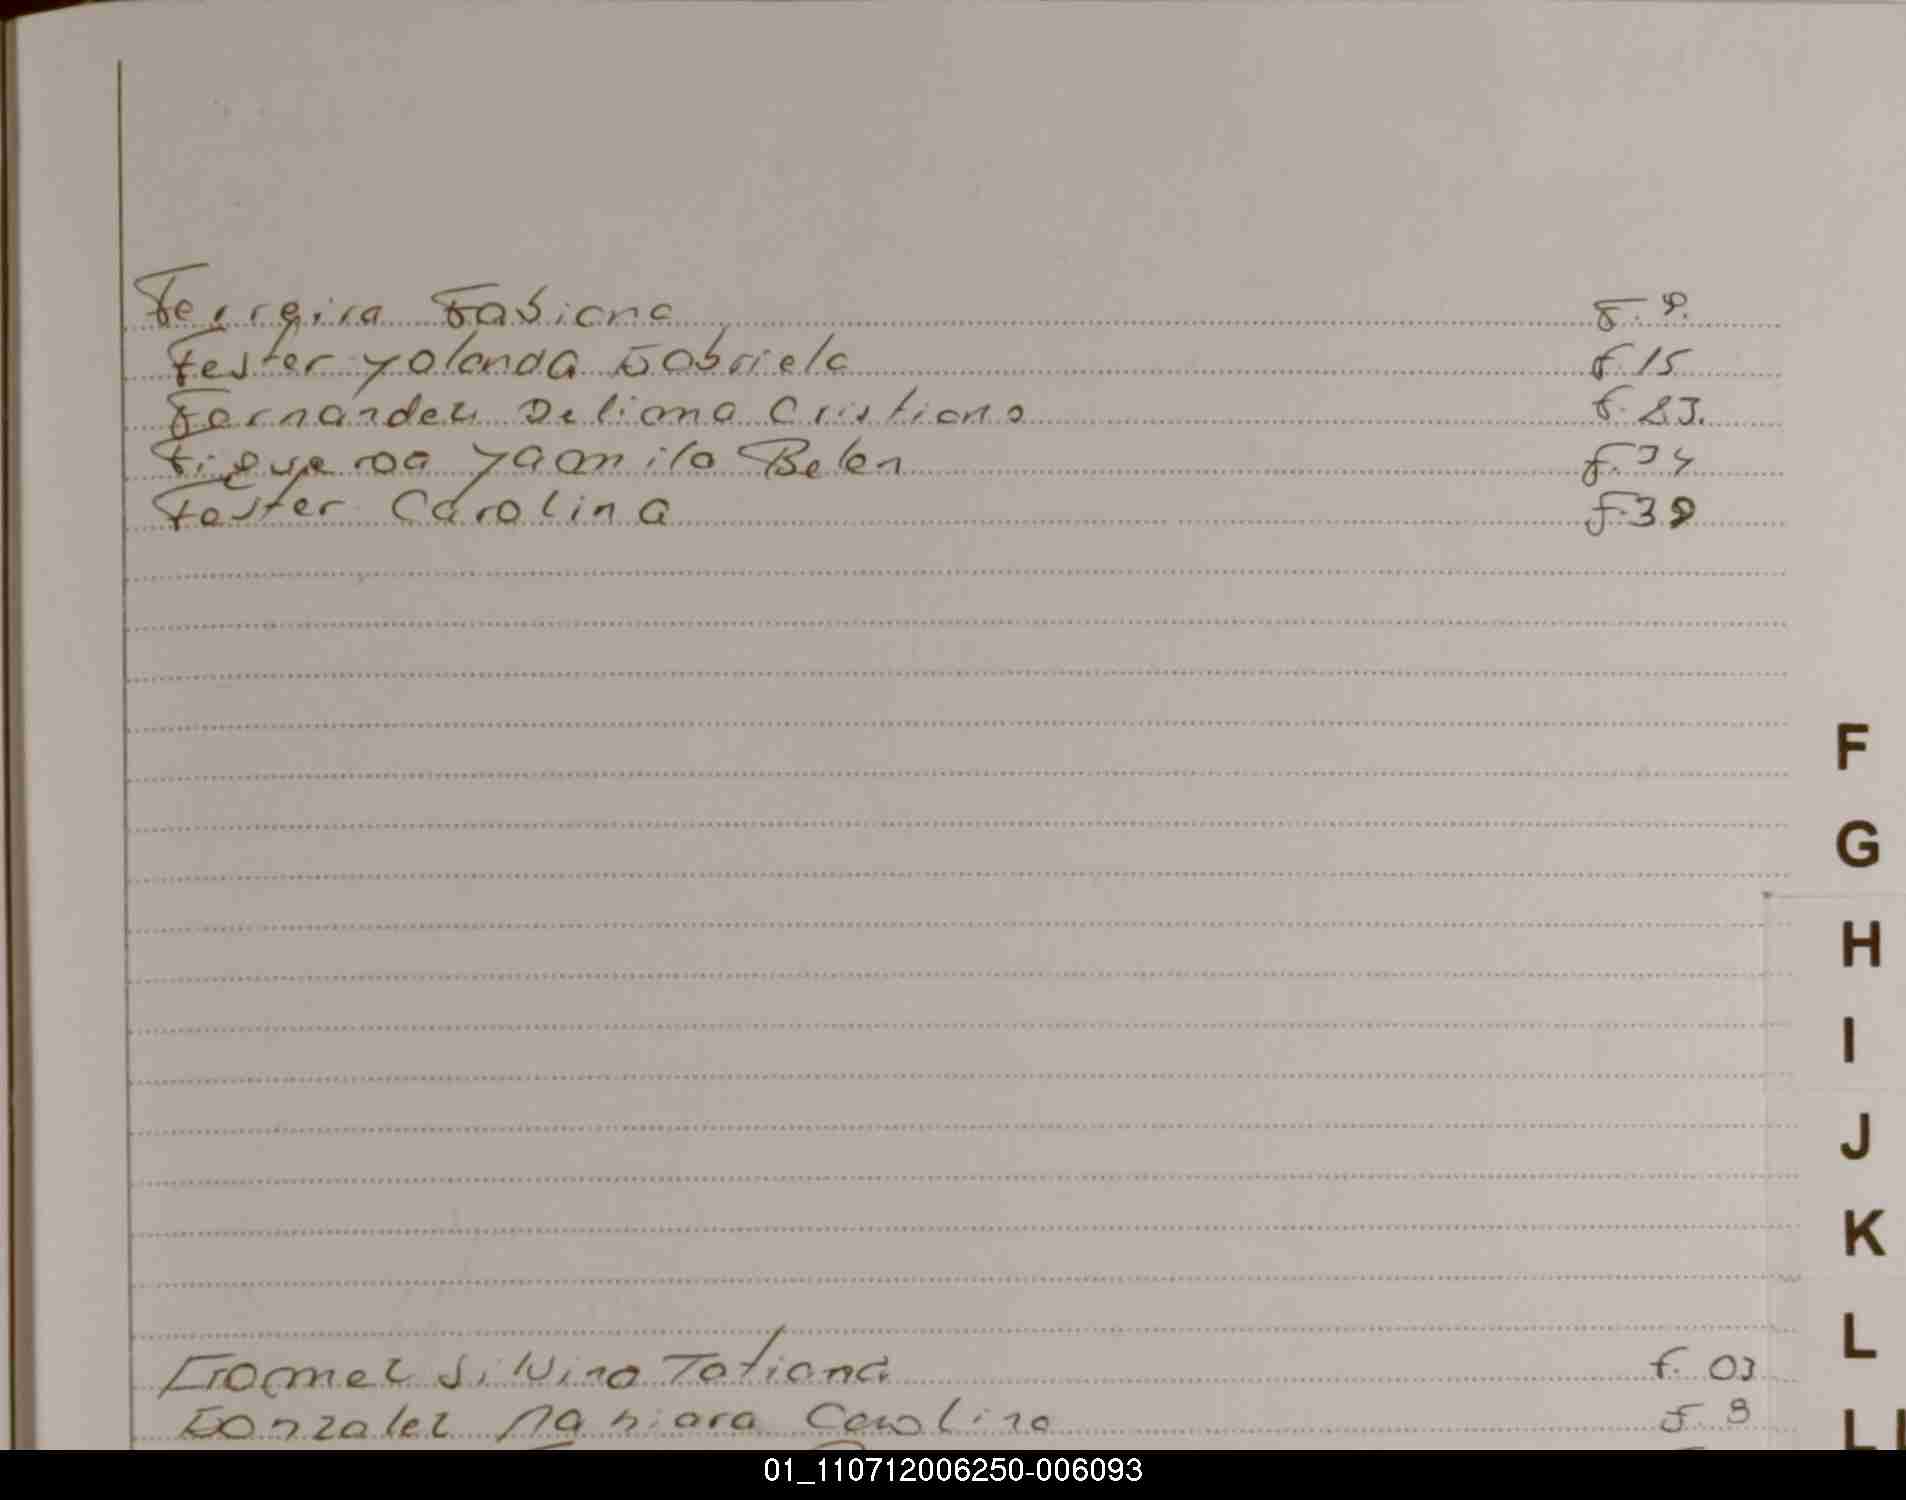 Ferreira Fabiana F. 9.
Fester Yolanda Gabriela f. 15
Fernandez Deliana Cristiana f. 23.
Figueroa Yamila Belen f. 34
Foster Carolina f. 39
F
G
H
I
J
K
L
Gomez Silvina Tatiana f. 03
Gonzalez Nahiara Carolina f. 9
01_110712006250-006093